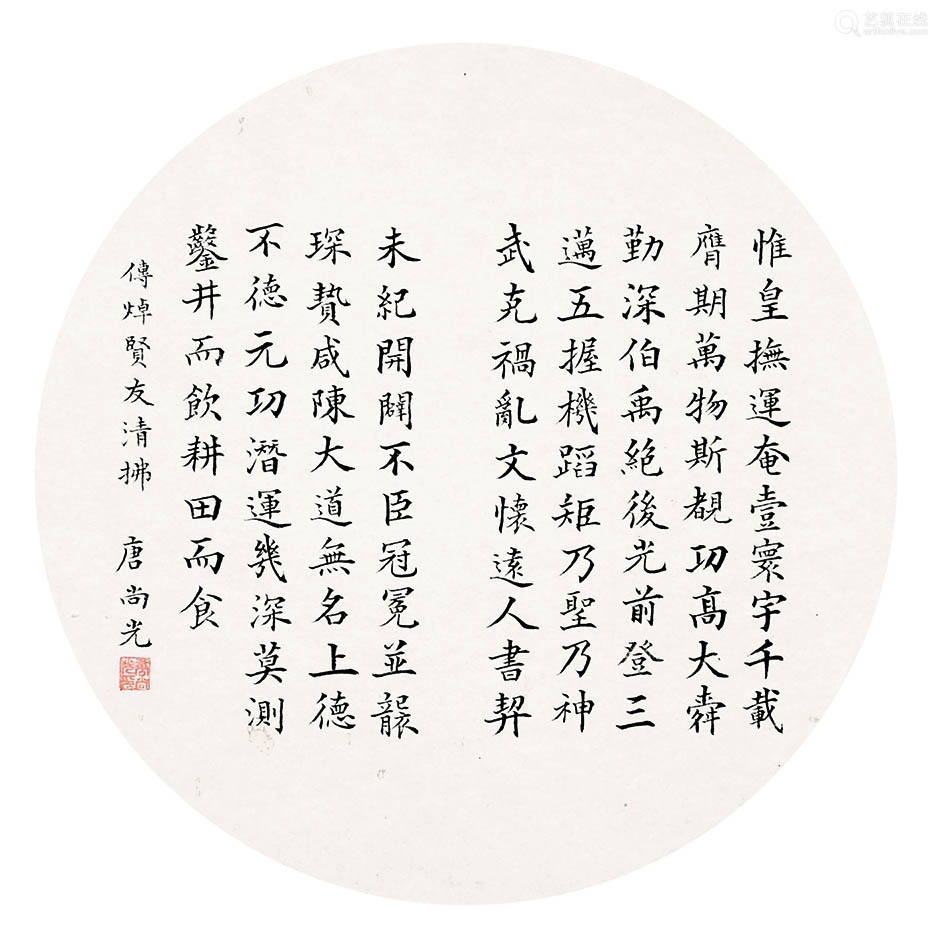 惟皇撫運奄壹寰宇千載
膺期萬物斯覩功高大舜
勤深伯禹絕後光前登三
邁五握機蹈矩乃聖乃神
武克禍亂文懷遠人書契
未紀開闢不臣冠冕並襲
琛贄咸陳大道無名上德
不德元功潛運幾深莫測
鑿井而飲耕田而食
傳焯賢友清拂 唐尚光
艺狐在线
artfoxlive.com